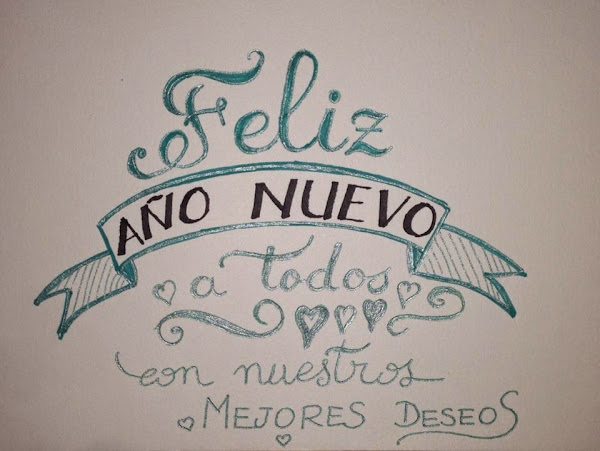 Feliz
AÑO NUEVO
a Todos
con nuestros
MEJORES DESEOS